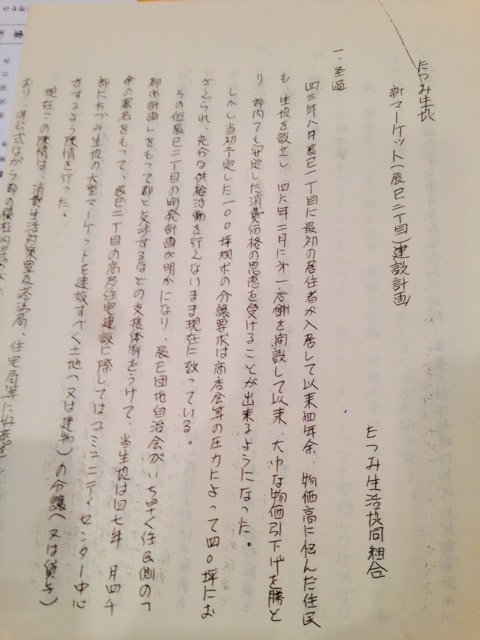 たつみ生協
新マーケット(辰巳二丁目)建設計画
たつみ生活協同組合
一、経過
四三年八月辰巳一丁目に最初の居住者が入居して以来四年余、物価高に悩んだ住民
も、生協を設立し、四六年二月に第一店舗を開設して以来、大巾な物価引下げを勝と
り、都内でも安定した消費価格の恩恵を受けることが出来るようになった。
しかし当初予定した一〇〇坪規模の分譲要求は商店会等の圧力によって四〇坪にお
さえられ、充分な供給活動を行えないまま現在に致っている。
その后辰巳二丁目の開発計画が明かになり、辰巳団地自治会がいちはやく住民側の「
都市計画」をもって都と交渉するなどの支援体制をうけて、当生協は四七年 月四千
余の署名をもって、辰巳二丁目の高層住宅建設に際してはコミュニティ・センター中心
部にたつみ生協の大型マーケットを建設すべく土地(又は建物)の分譲(又は貸与)
をするよう陳情を行った。
現在この陳情は、消費生活対策室及
局、住宅局等に
おり、非公式ながら都の